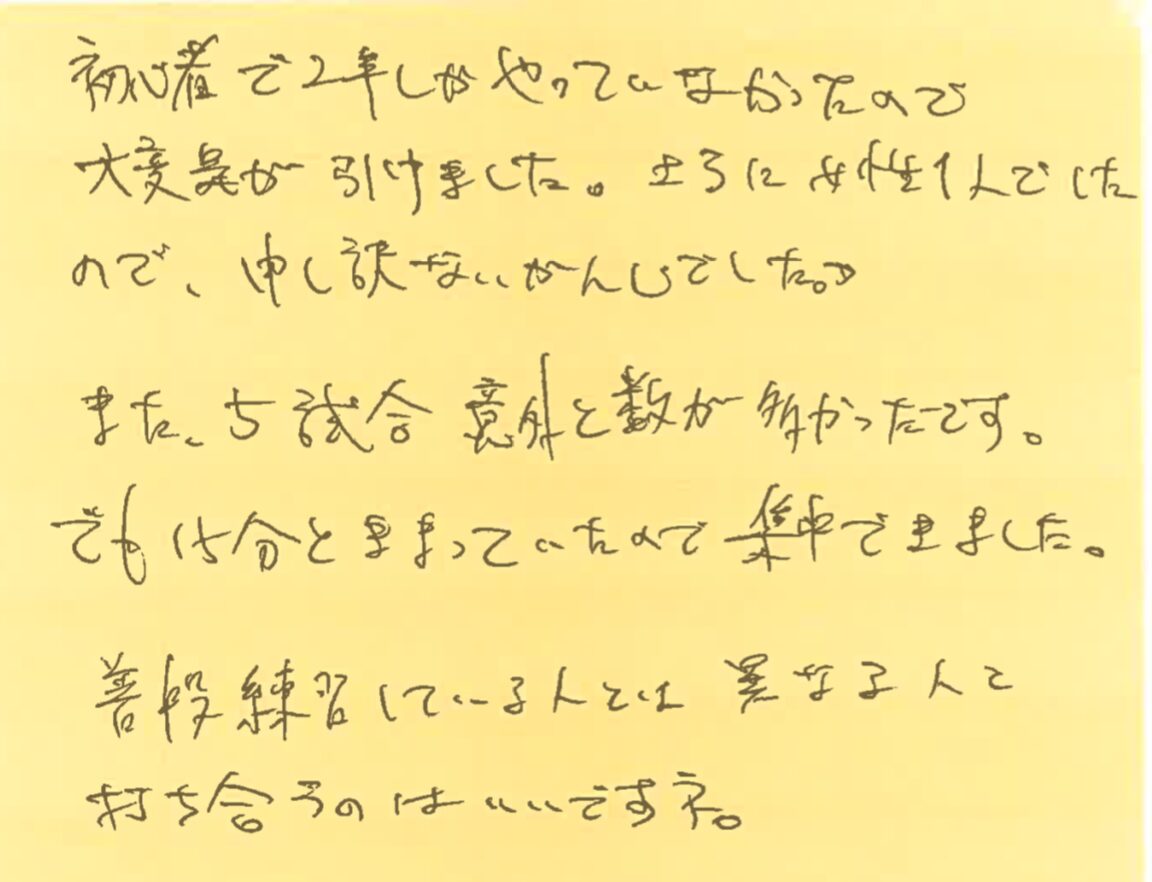 初心者で2年しかやっていなかったので
大変気が引けました。さらに女性1人でした
ので、申し訳ないかんじでした。
また、5試合意外と数が多かったです。
でも15分ときまっていたので集中できました。
普段練習している人とは異なる人と
打ち合うのはいいですネ。